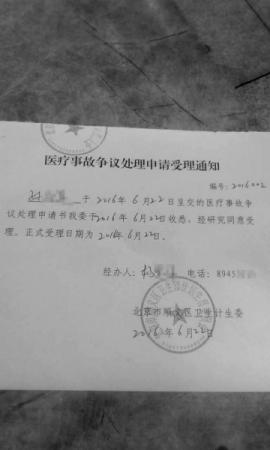 医疗事故争议处理申请受理通知
编号：2016002
于 2016年 6月22日呈交的医疗事故争
议处理申请书我委于2016年 6月22日收悉。经研究同意受
理。正式受理日期为 2016年 6月22日。
经办人： 电话：8945
北京市顺义区卫生计生委
2016年6月22日